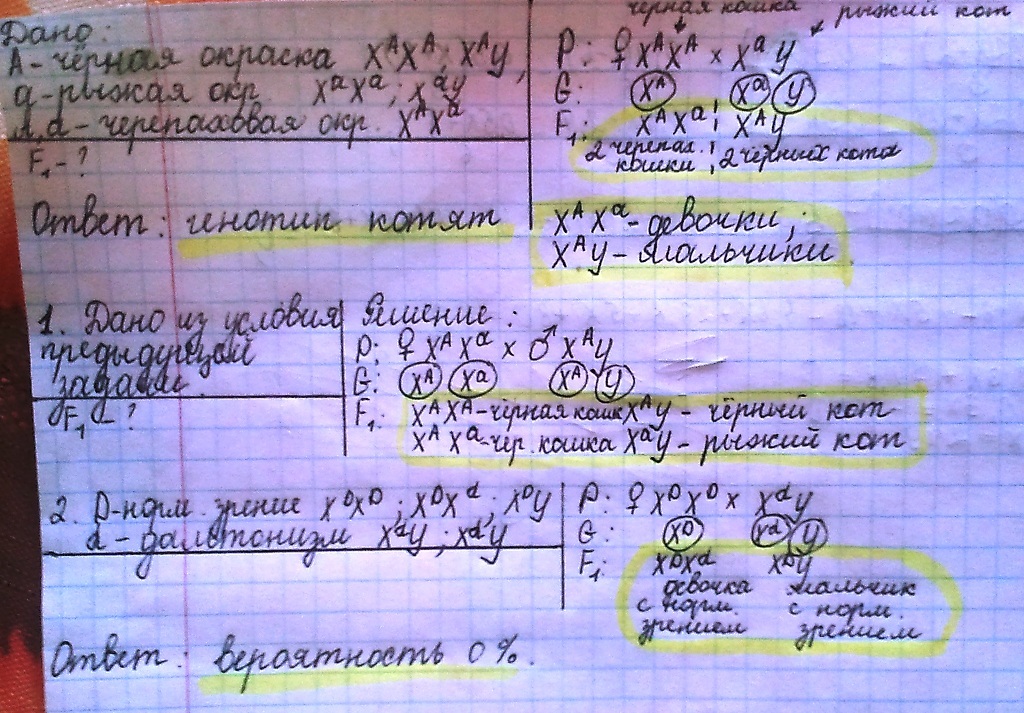 Дано:
А - чёрная окраска XᴬXᴬ; XᴬY,
а - рыжая окр. XᵃXᵃ; XᵃY
А,а - черепаховая окр. XᴬXᵃ
F₁ - ?
чёрная кошка рыжий кот
P: ♀ XᴬXᴬ × XᵃY
G: Xᴬ Xᵃ Y
F₁: XᴬXᵃ; XᴬY
2 черепах. ; 2 чёрных кота
кошки
Ответ: генотип котят XᴬXᵃ - девочки;
XᴬY - мальчики
1. Дано из условия
предыдущей
задачи.
F₁ - ?
Решение:
P: ♀ XᴬXᵃ × ♂ XᴬY
G: Xᴬ Xᵃ Xᴬ Y
F₁: XᴬXᴬ - чёрная кошк XᴬY - чёрный кот
XᴬXᵃ - чер. кошка XᵃY - рыжий кот
2. D - норм. зрение XᴰXᴰ; XᴰXᵈ; XᴰY
d - дальтонизм XᵈY; XᵈY
P: ♀ XᴰXᴰ × XᵈY
G: Xᴰ Xᵈ Y
F₁: XᴰXᵈ XᴰY
девочка мальчик
с норм. с норм.
зрением зрением
Ответ: вероятность 0%.